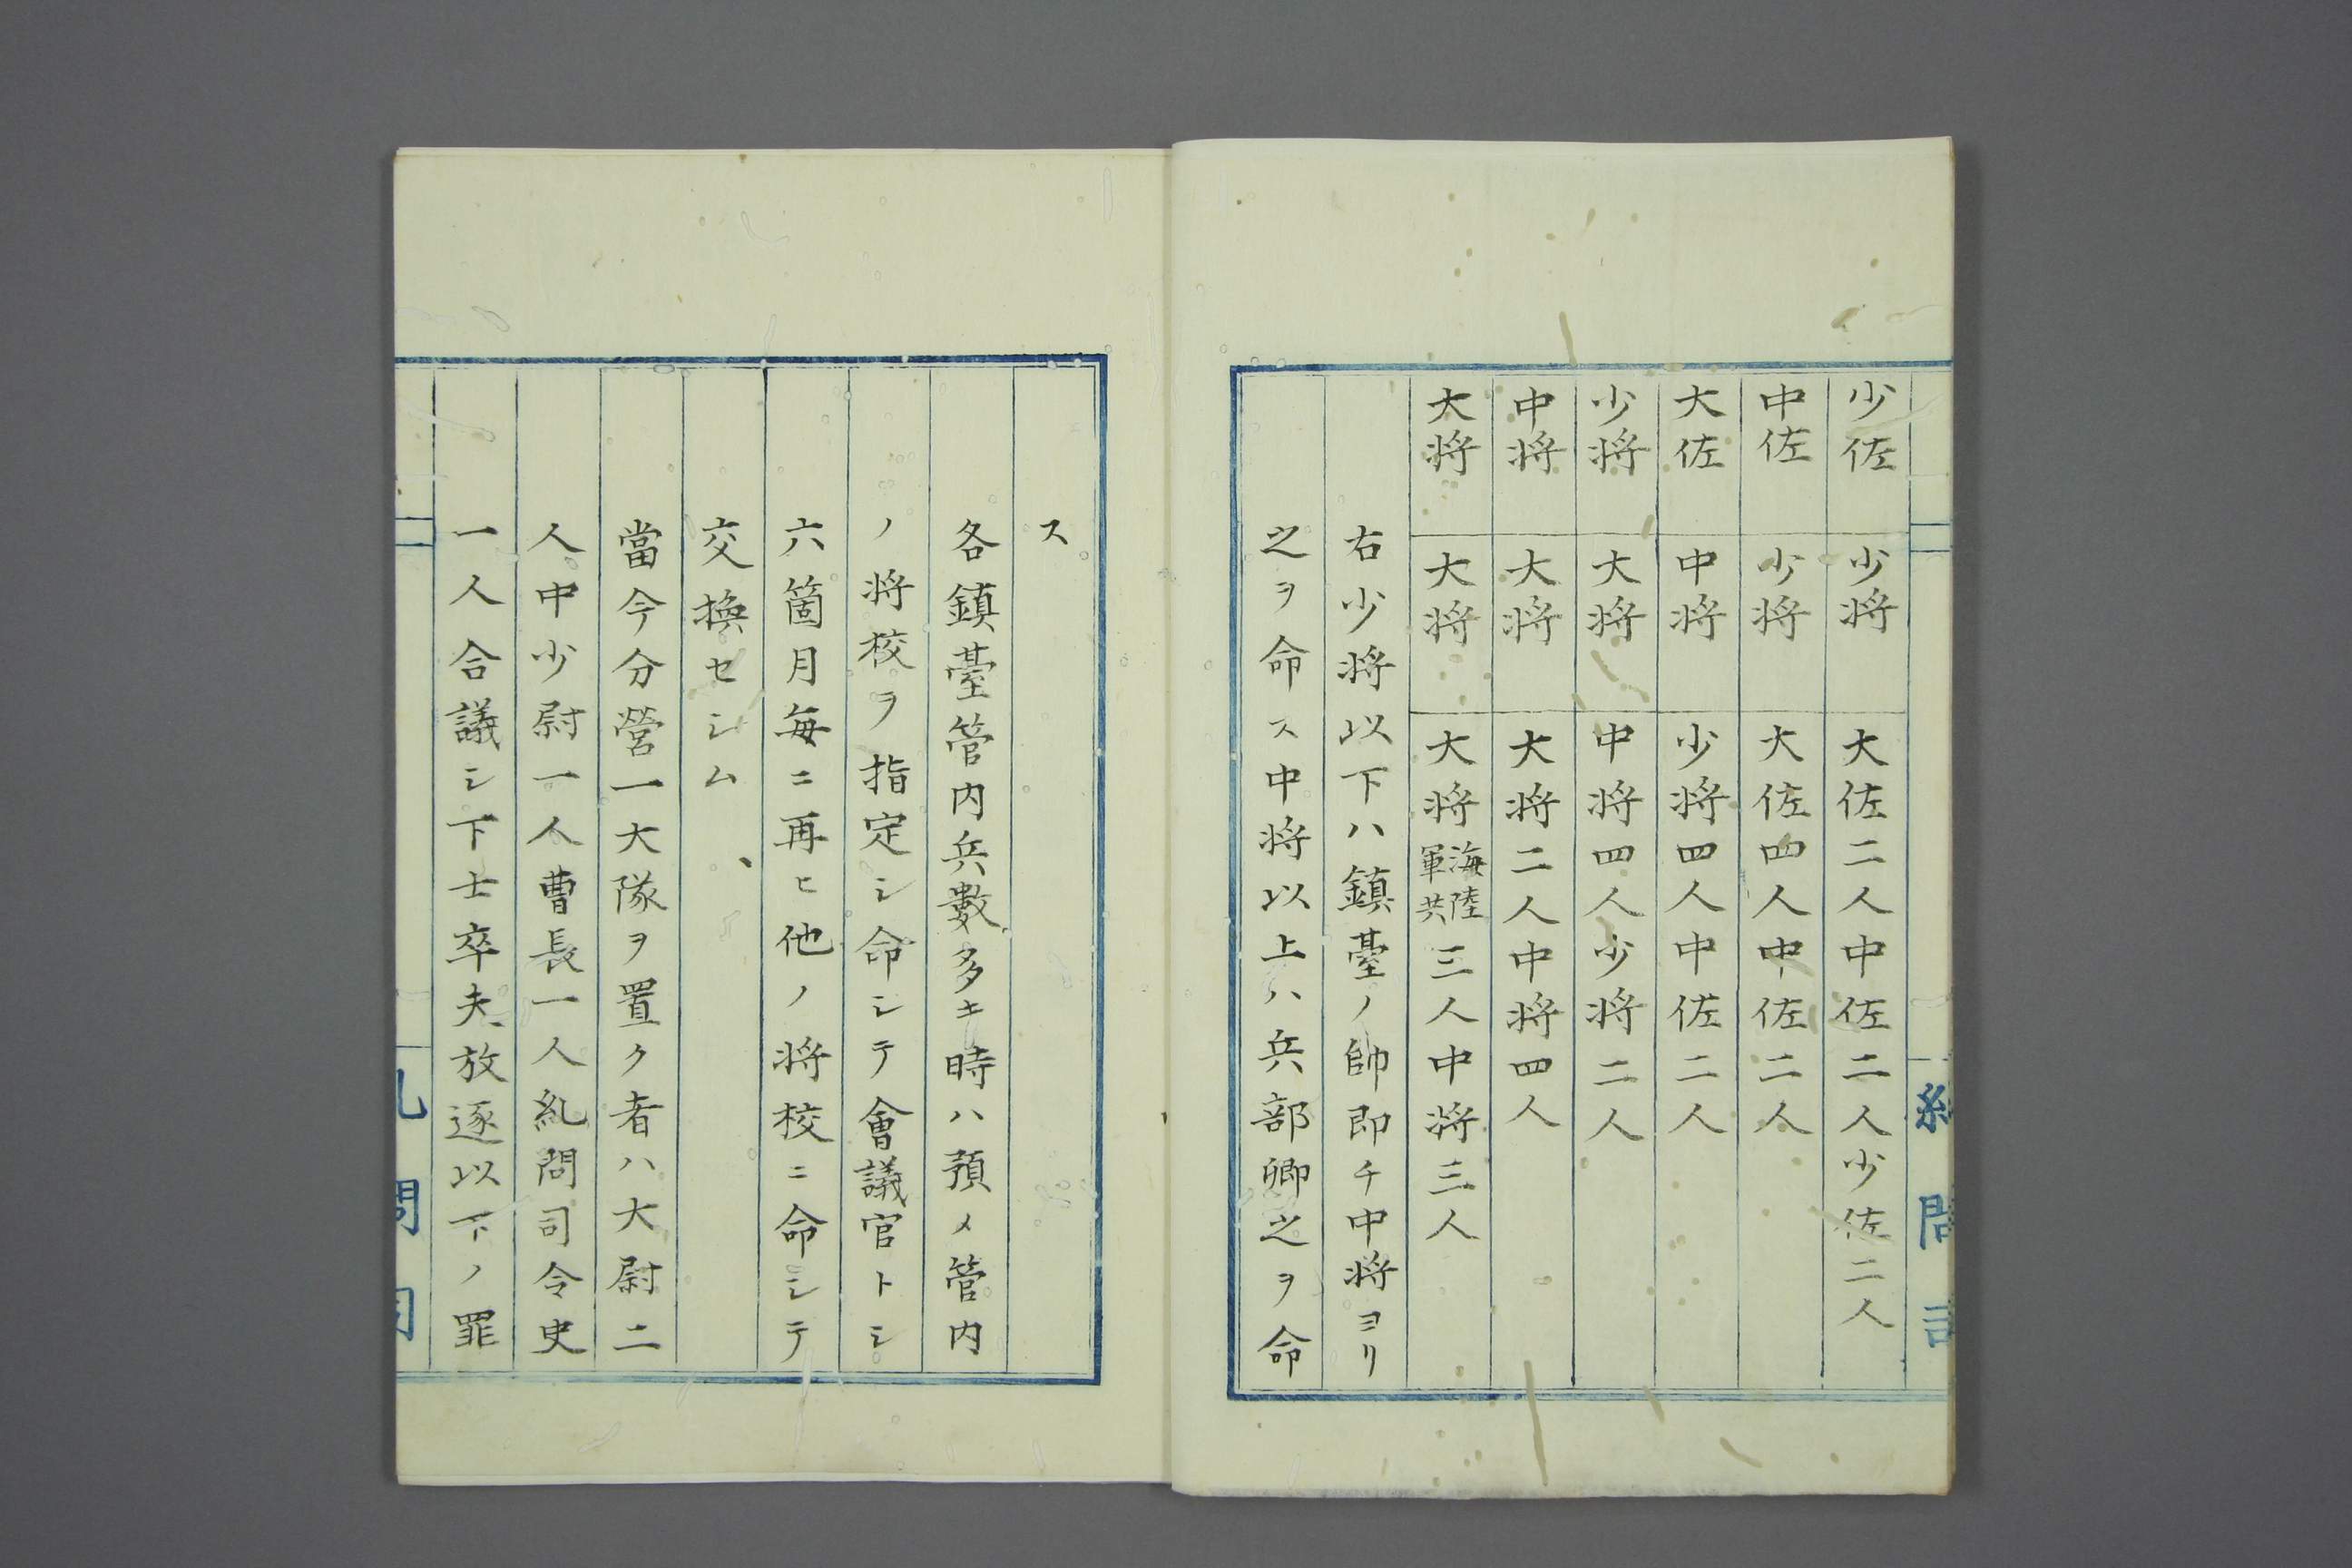 少佐 少将 大佐二人中佐二人少佐二人
中佐 少将 大佐四人中佐二人
大佐 中将 少将四人中佐二人
少将 大将 中将四人少将二人
中将 大将 大将二人中将四人
大将 大将 大将海陸軍共三人中将三人
右少将以下ハ鎮臺ノ帥即チ中将ヨリ
之ヲ命ス中将以上ハ兵部卿之ヲ命
ス
各鎮臺管内兵數多キ時ハ預メ管内
ノ将校ヲ指定シ命シテ會議官トシ
六箇月毎ニ再ヒ他ノ将校ニ命シテ
交換セシム
當今分營一大隊ヲ置ク者ハ大尉二
人中少尉一人曹長一人糺問司令史
一人合議シ下士卒夫放逐以下ノ罪